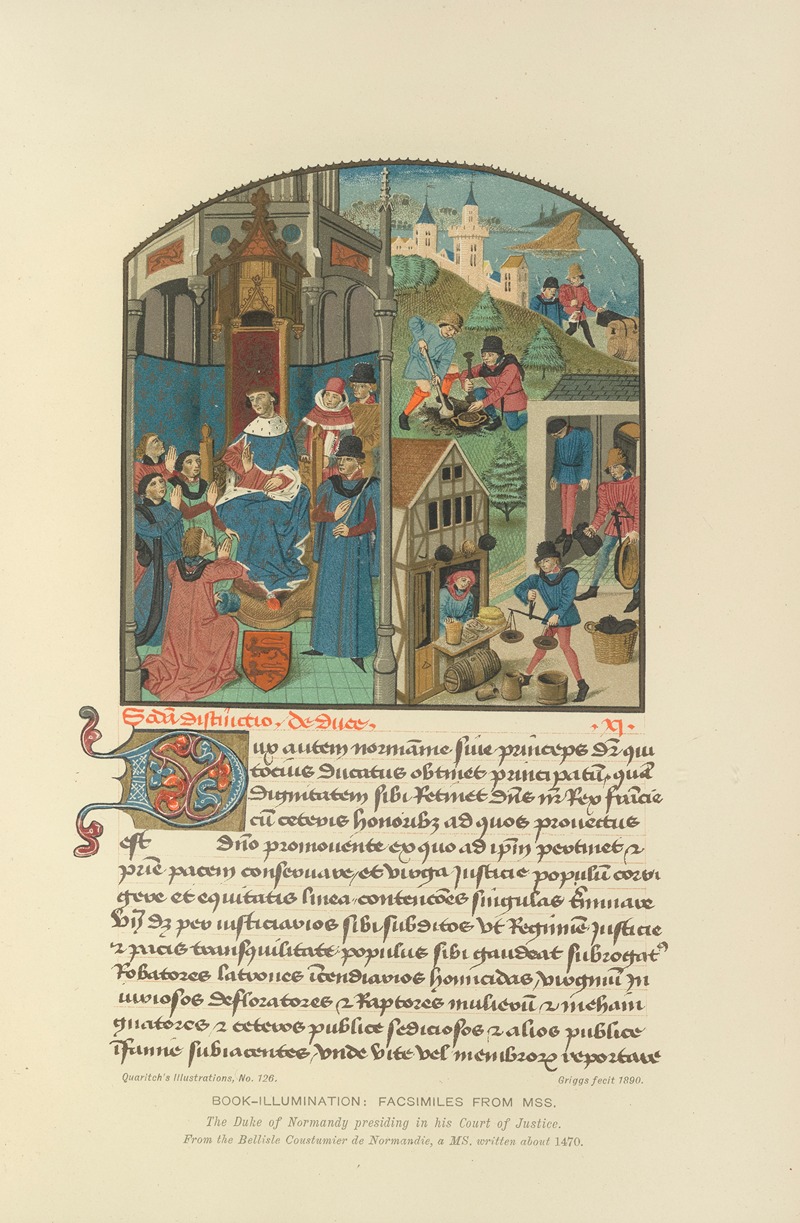 Scdā Distinctio. de duce. .xj.
Dux autem normānie siue princeps dr̄ qui
tocius ducatus obtinet principatū, quā
dignitatem sibi Retinet dn̄s nr̄ Rex francie
cū ceteris honoribȝ ad quos prouectus
est dn̄o promouente ex quo ad ip̄m pertinet ⁊
priē pacem conseruare, et virga Justicie populū corri
gere et equitatis linea contencōes singulas t̄minare
per iusticiarios sibi subditos vt Regimīe Justicie
⁊ pacis tranſquilitate populus sibi gaudeat subrogatꝰ
Robatores latrones īcendiarios homicidas, virginū in
iuriosos defloratores ⁊ Raptores mulierū ⁊ mehain
gnatores ⁊ ceteros publice sediciosos ⁊ alios publice
īfamie subiacentes, vnde vite vel membroꝝ reportare
Quaritch's Illustrations, No. 126. Griggs fecit 1890.
BOOK-ILLUMINATION: FACSIMILES FROM MSS.
The Duke of Normandy presiding in his Court of Justice.
From the Bellisle Coustumier de Normandie, a MS. written about 1470.